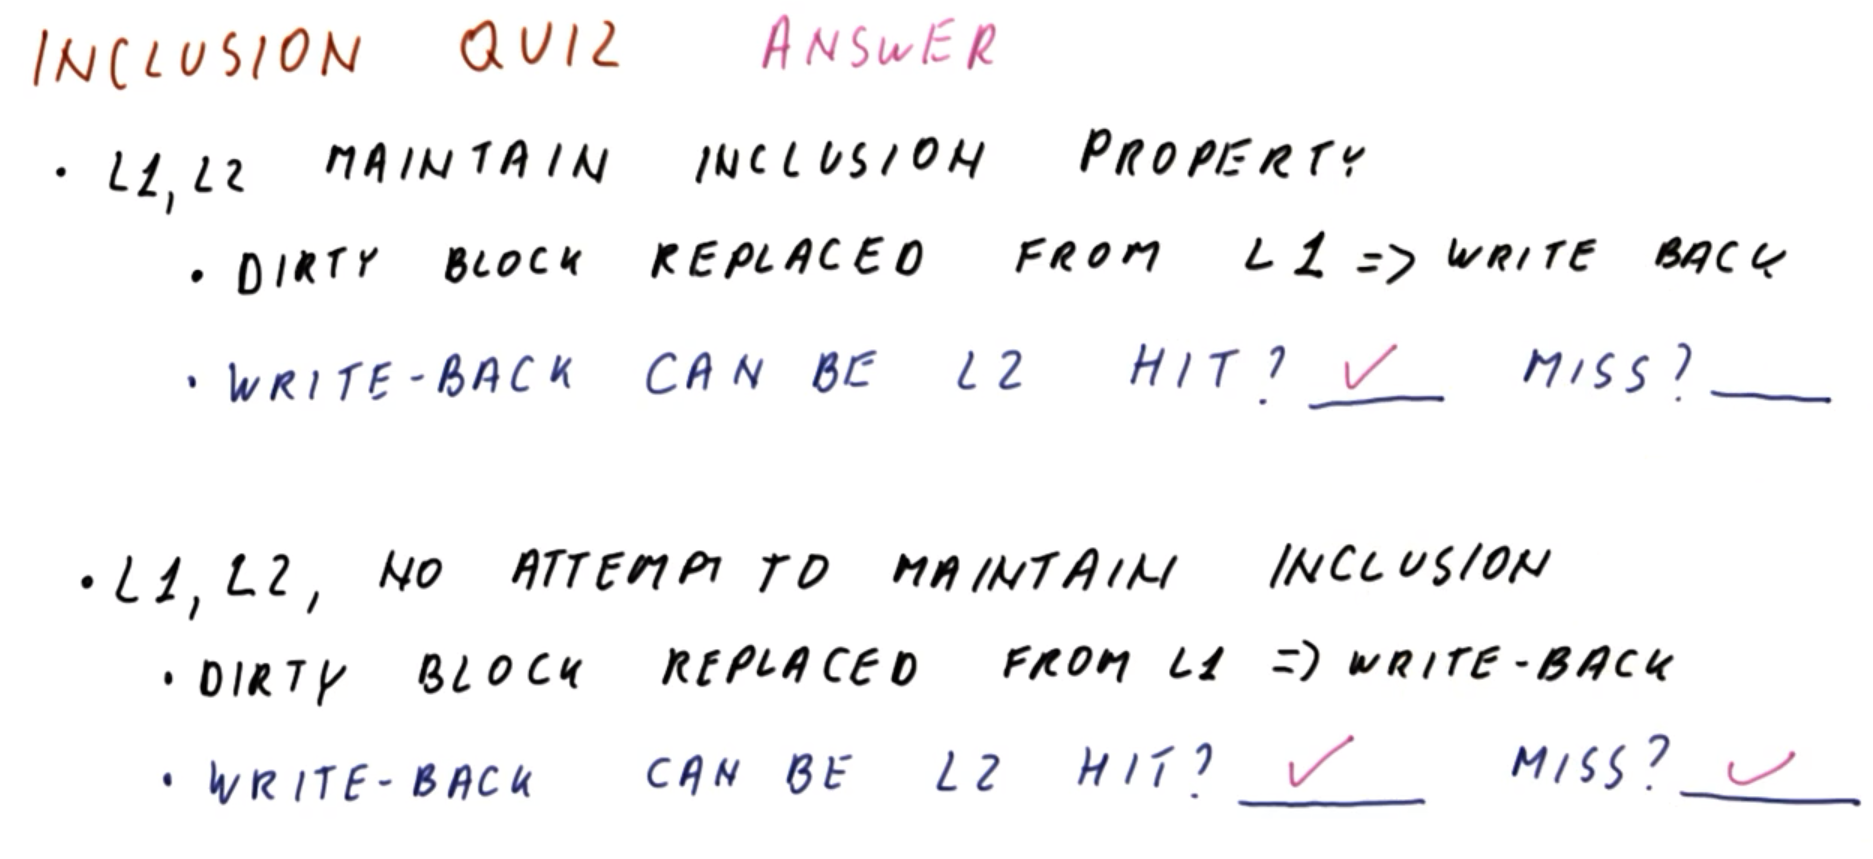 INCLUSION QUIZ ANSWER
• L1, L2 MAINTAIN INCLUSION PROPERTY
• DIRTY BLOCK REPLACED FROM L1 => WRITE BACK
• WRITE-BACK CAN BE L2 HIT? ✓ MISS? ___
• L1, L2, NO ATTEMPT TO MAINTAIN INCLUSION
• DIRTY BLOCK REPLACED FROM L1 => WRITE-BACK
• WRITE-BACK CAN BE L2 HIT? ✓ MISS? ✓